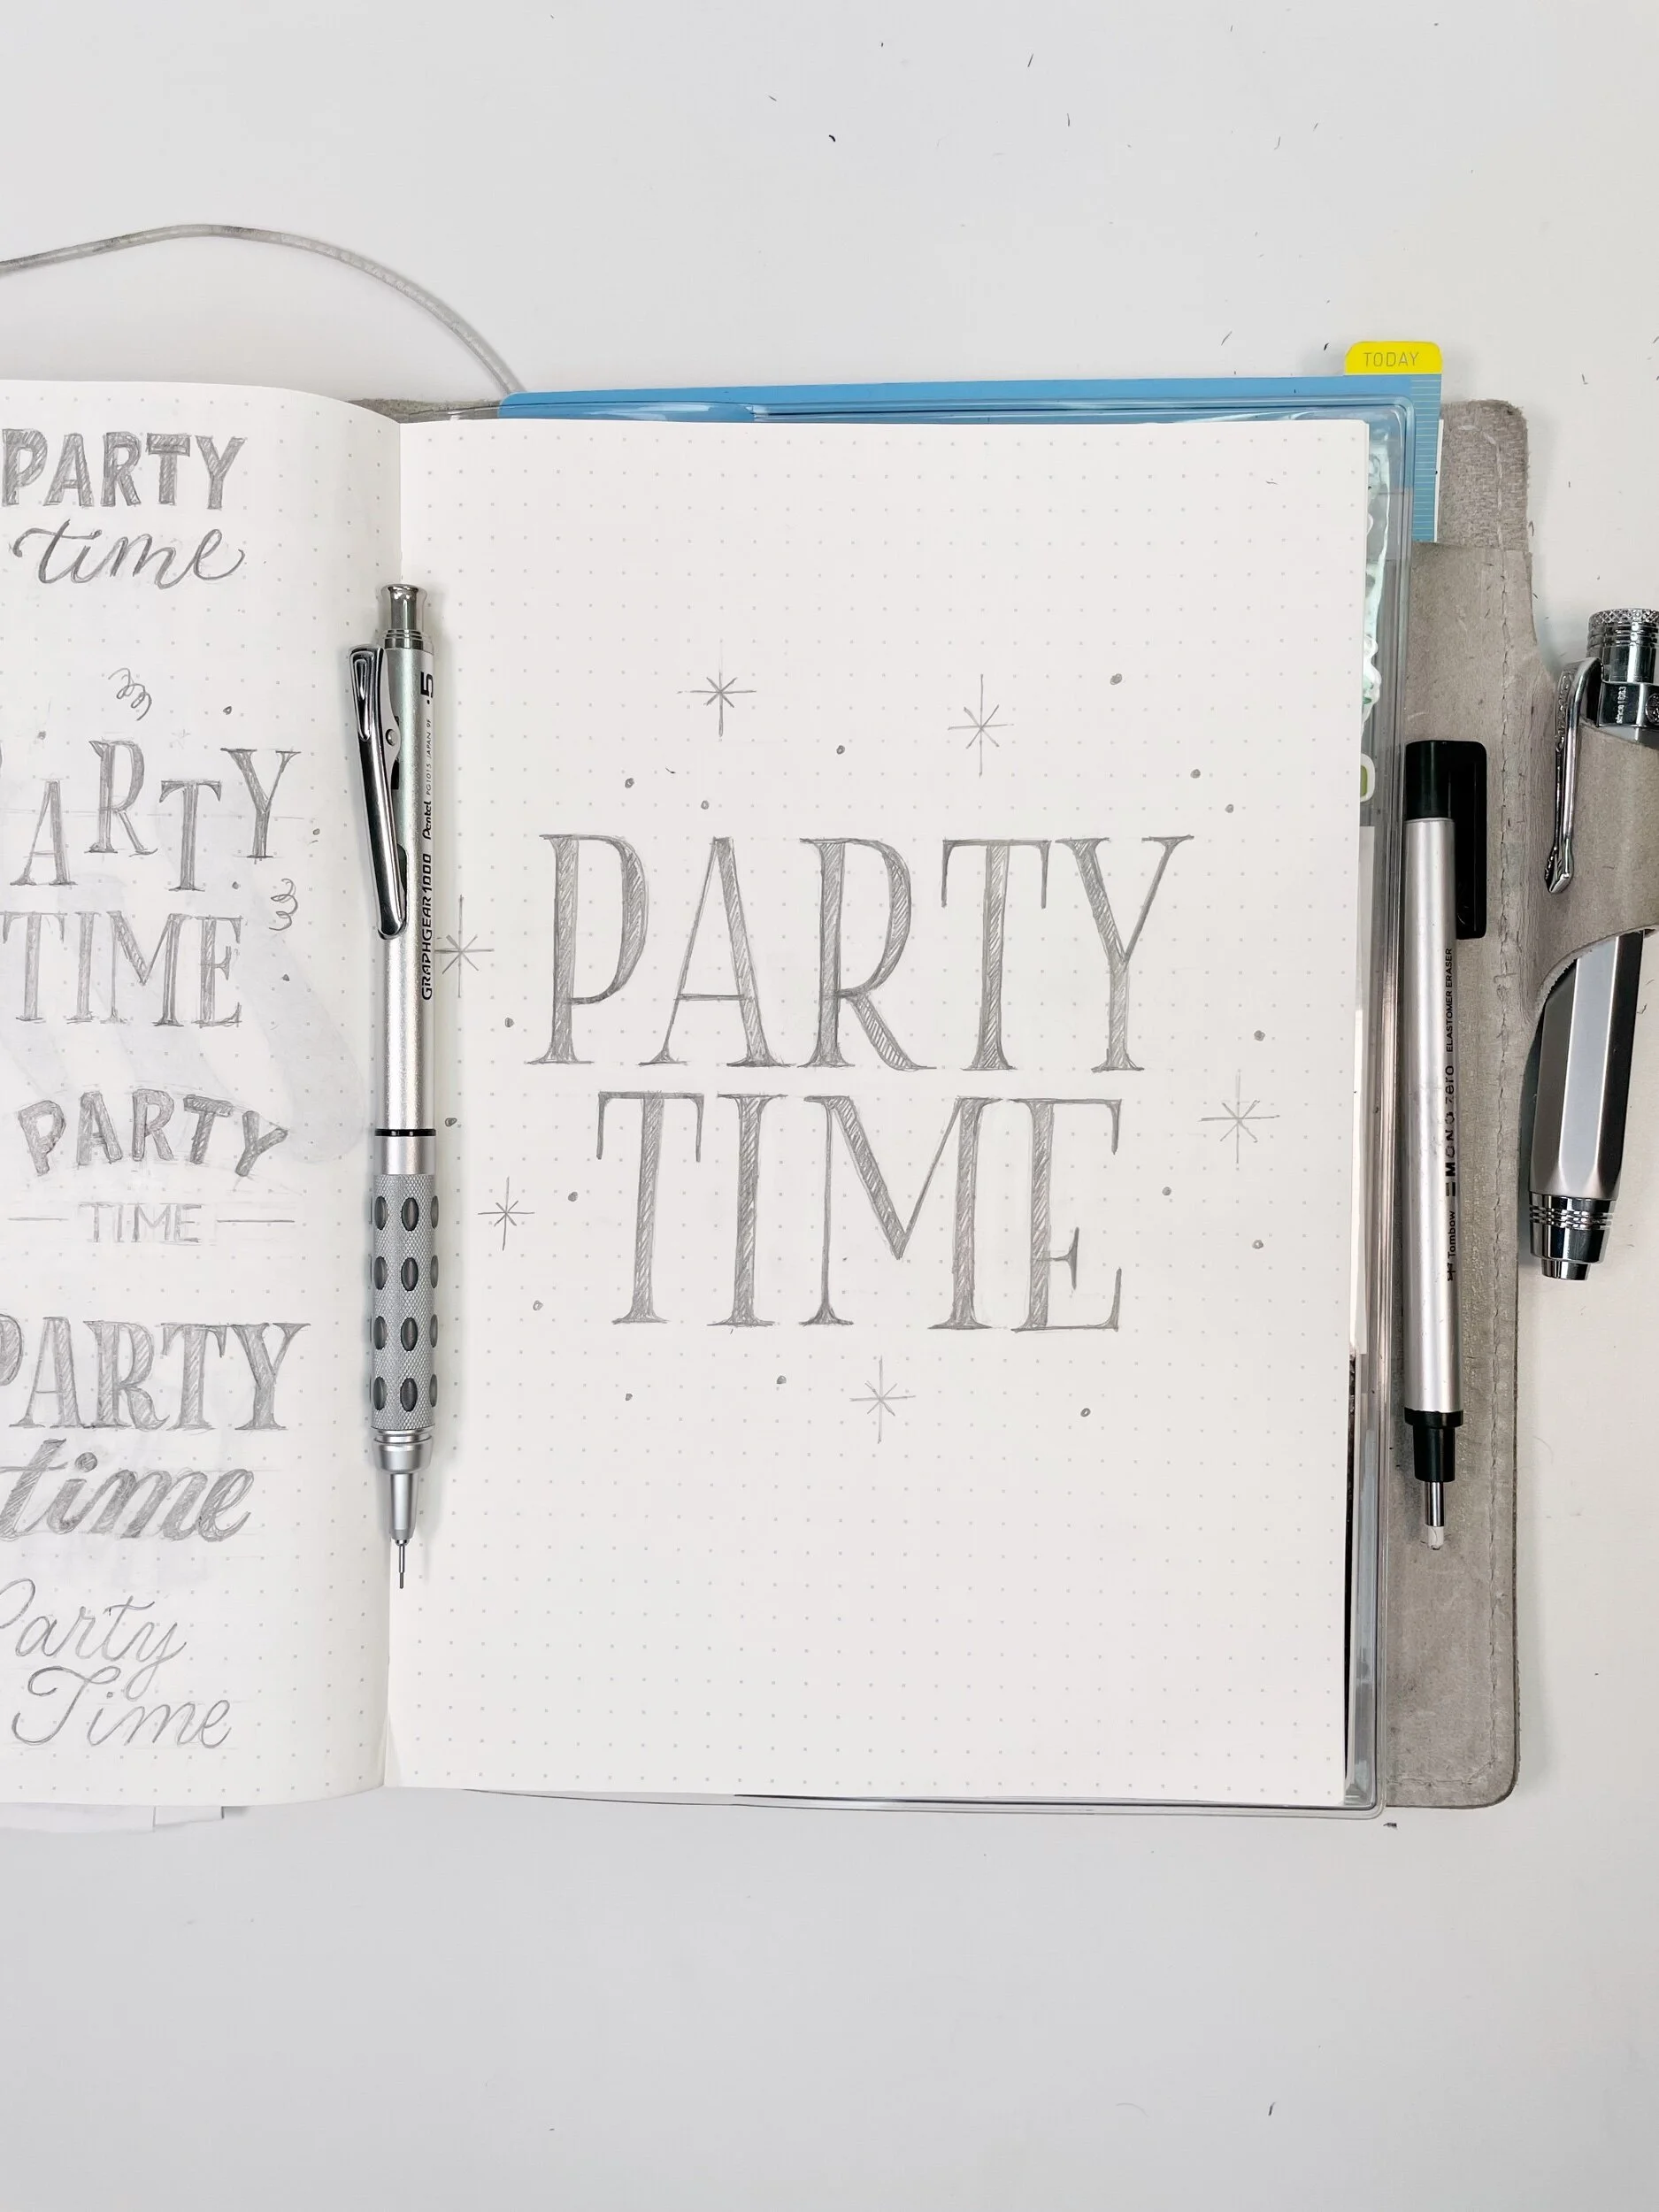 TODAY
PARTY
time
PARTY
TIME
PARTY
TIME
PARTY
time
Party
Time
.5
GRAPHGEAR 1000 Pentel PG1015 JAPAN
PARTY
TIME
Tombow MONO zero ELASTOMER ERASER